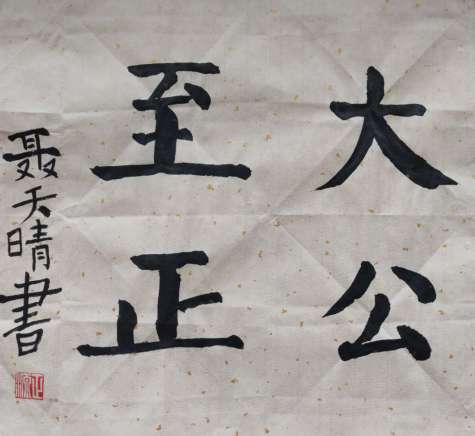 大公
至正
聂天晴書